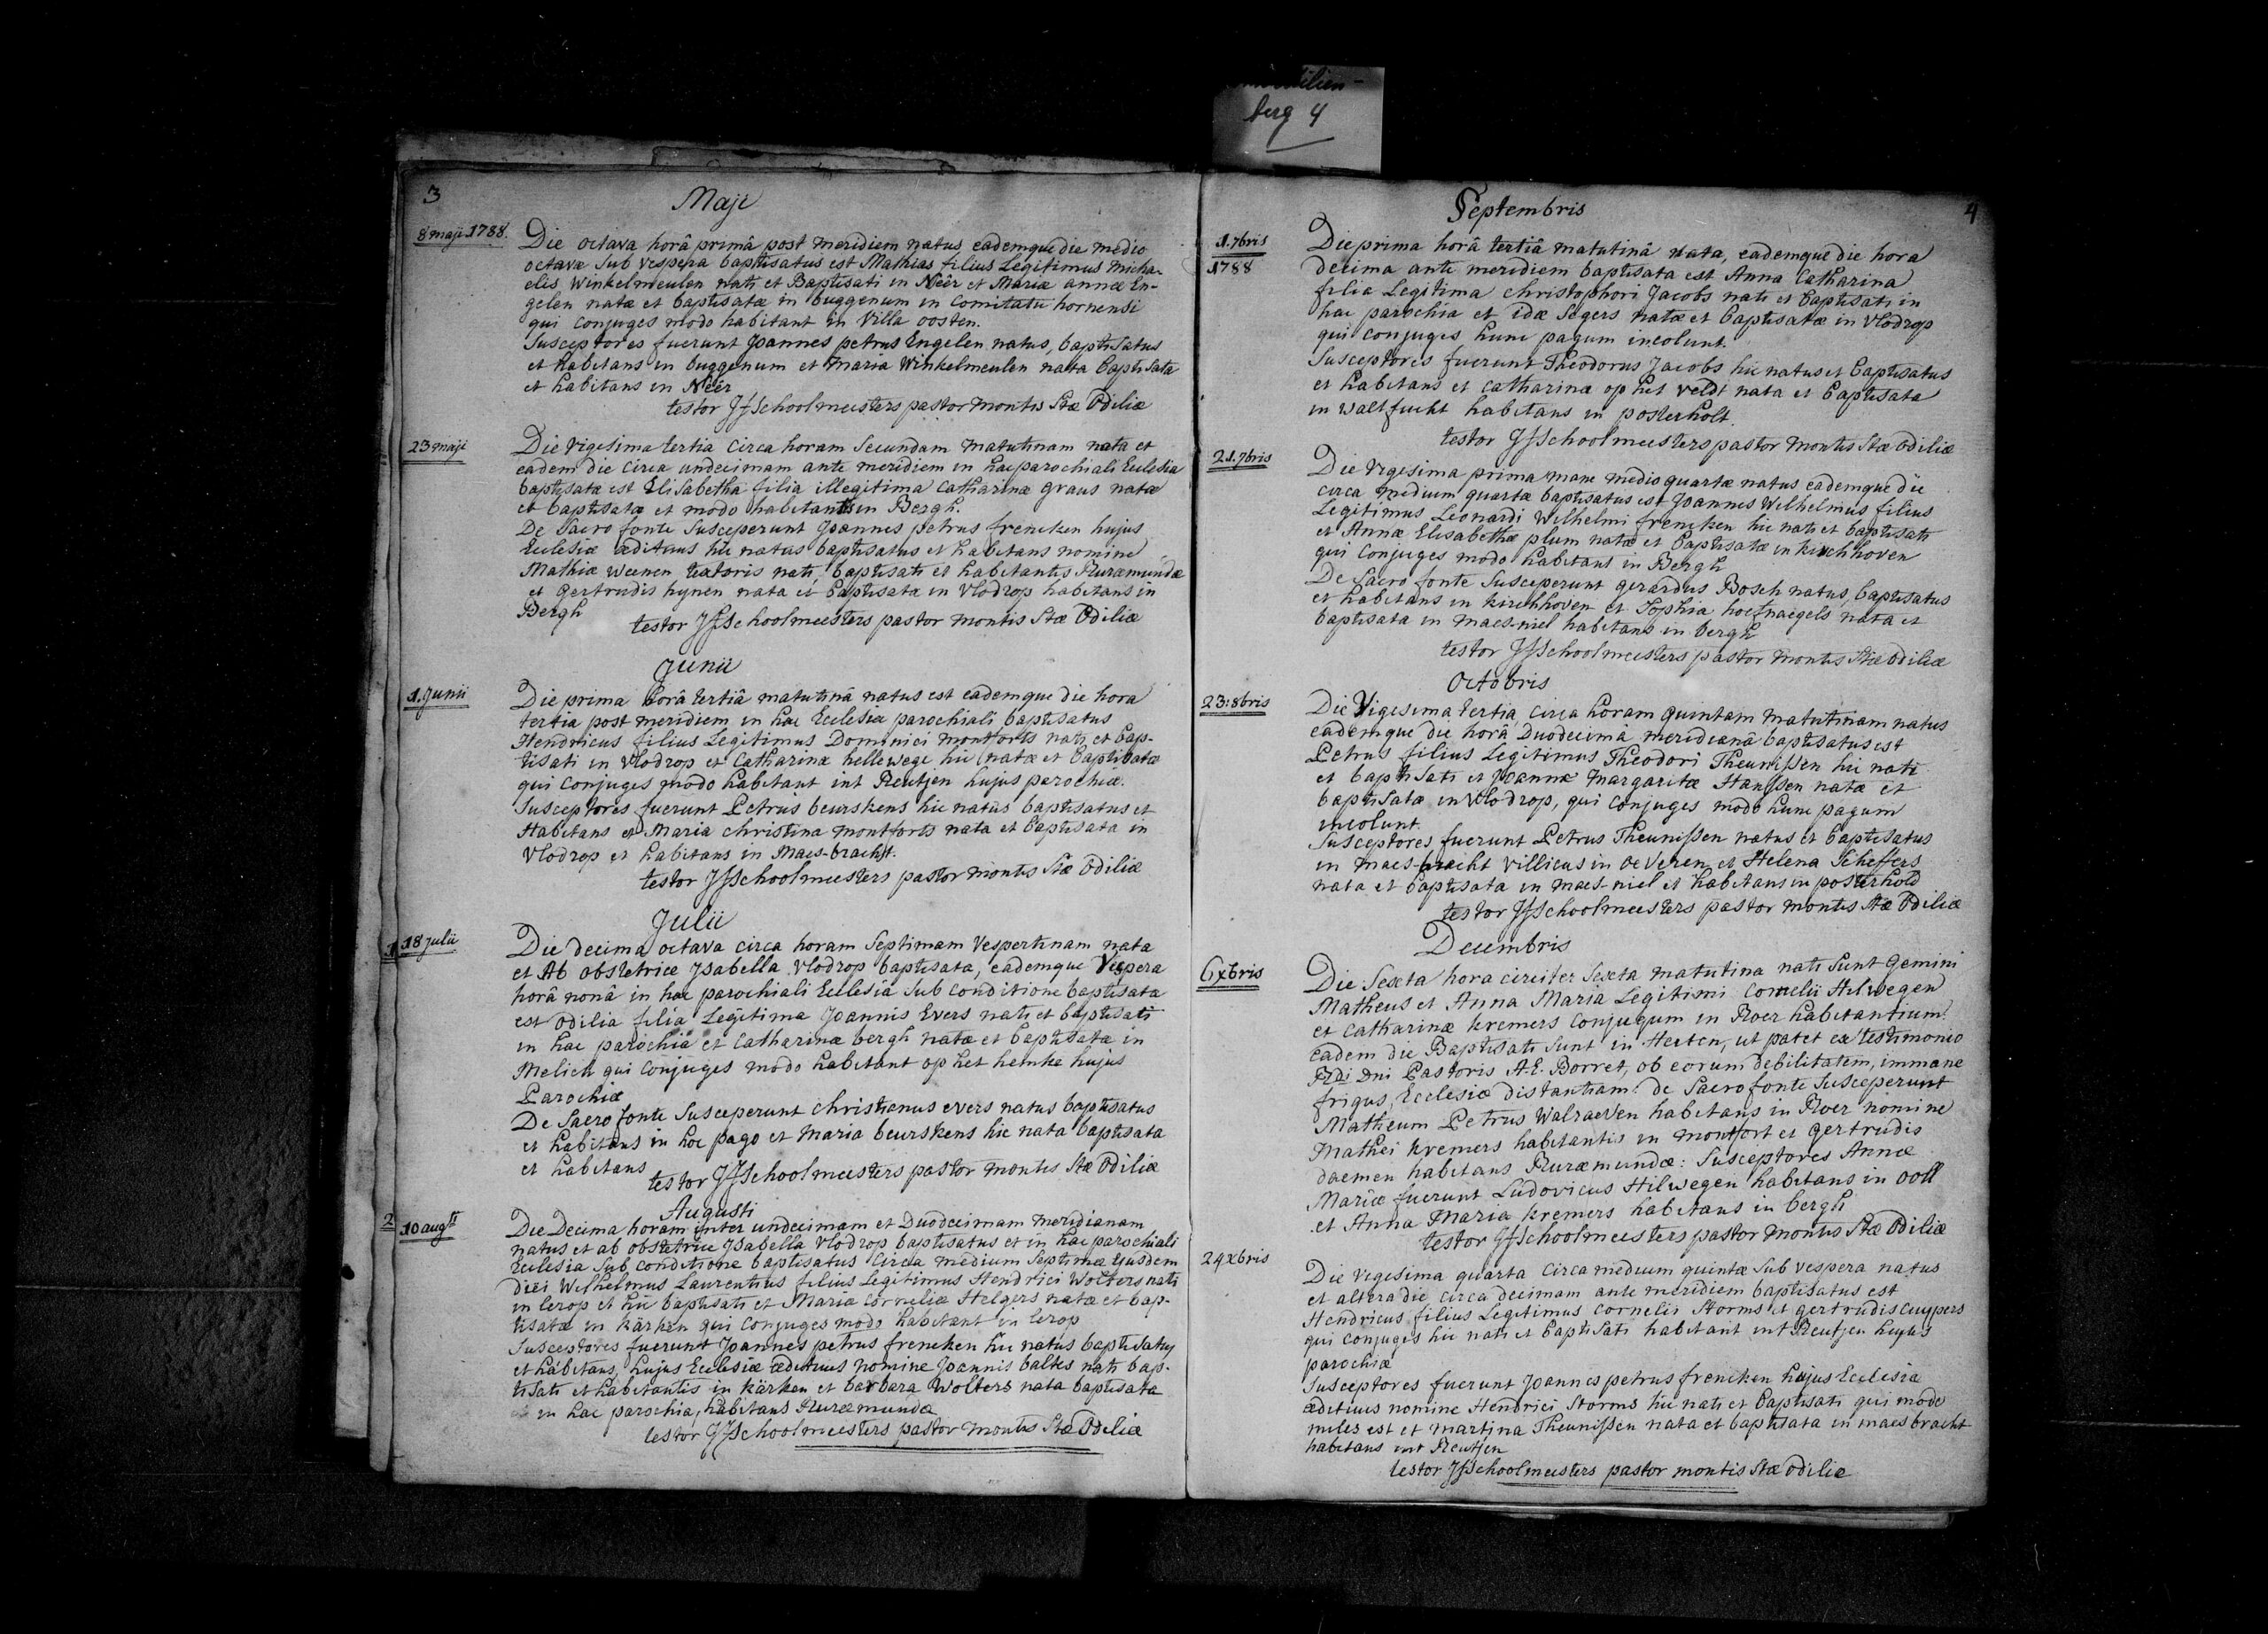 berg 4
3
Maji
8 maji 1788.
Die octava horâ primâ post meridiem natus eademque die medio
octavæ sub vespera baptisatus est Mathias filius Legitimus Micha-
elis Winkelmeulen nati et Baptisati in Nëer et Mariæ annæ En-
gelen natæ et baptisatæ in buggenum in Comitatu hornensi
qui Conjuges modo habitant in Villa oosten.
Susceptores fuerunt Joannes petrus Engelen natus, baptisatus
et habitans in buggenum et Maria Winkelmeulen nata baptisata
et habitans in Nëer
testor JJSchoolmeesters pastor Montis Stæ Odiliæ
23 maji
Die Vigesima tertia Circa horam Secundam Matutinam nata et
eadem die Circa undecimam ante meridiem in hac parochiali Ecclesia
baptisata est Elisabetha filia illegitima Catharinæ graus natæ
et baptisatæ et modo habitantis in Bergh.
De Sacro fonte Susceperunt Joannes petrus frencken hujus
Ecclesiæ ædituus hic natus baptisatus et habitans nomine
Mathiæ Weenen textoris nati, baptisati et habitantis Ruræmundæ
et gertrudis hynen nata et baptisata in Vlodrop habitans in
Bergh
testor JJSchoolmeesters pastor Montis Stæ Odiliæ
Junii
1. Junii
Die prima horâ tertiâ matutinâ natus est eademque die hora
tertia post meridiem in hac Ecclesia parochiali baptisatus
Hendricus filius Legitimus Dominici Montforts nati et bap-
tisati in Vlodrop et Catharinæ hellewege hic natæ et baptisatæ
qui Conjuges modo habitant int Reutjen hujus parochiæ.
Susceptores fuerunt Petrus beurskens hic natus baptisatus et
Habitans et Maria christina montforts nata et baptisata in
Vlodrop et habitans in Maes-bracht.
testor JJSchoolmeesters pastor montis Stæ Odiliæ
Julii
1 18 julii
Die decima octava circa horam Septimam Vespertinam nata
et Ab obstetrice Ysabella Vlodrop baptisata, eademque Vespera
horâ nonâ in hac parochiali Ecclesia sub conditione baptisata
est Odilia filia Legitima Joannis Evers nati et baptisati
in hac parochia et Catharinæ bergh natæ et baptisatæ in
Melich qui Conjuges modo habitant op het heinke hujus
Parochiæ
De Sacro fonte Susceperunt Christianus evers natus baptisatus
et habitans in hoc pago et Maria beurskens hic nata baptisata
et habitans
testor JJSchoolmeesters pastor montis Stæ Odiliæ
Augusti
2 10 augti
Die Decima horam inter undecimam et Duodecimam meridianam
natus et ab obstetrice Ysabella Vlodrop baptisatus et in hac parochiali
Ecclesia Sub conditione baptisatus Circa medium Septimæ Ejusdem
diei Wilhelmus Laurentius filius Legitimus Hendrici Wolters nati
in lerop et hic baptisati et Mariæ Corneliæ Helgers natæ et bap-
tisatæ in kärken qui Conjuges modo habitant in lerop
Susceptores fuerunt Joannes petrus frencken hic natus baptisatus
et habitans hujus Ecclesiæ ædituus nomine Joannis baltes nati bap-
tisati et habitantis in kärken et barbara Wolters nata baptisata
in hac parochia, habitans Ruræmundæ
testor JJSchoolmeesters pastor montis Stæ Odiliæ
4
Septembris
1. 7bris
1788
Die prima horâ tertiâ matutinâ nata, eademque die hora
decima ante meridiem baptisata est Anna Catharina
filia Legitima christophori Jacobs nati et baptisati in
hac parochia et idæ Segers natæ et baptisatæ in Vlodrop
qui conjuges hunc pagum incolunt.
Susceptores fuerunt Theodorus Jacobs hic natus et baptisatus
et habitans et catharina op het veldt nata et baptisata
in Waltfucht habitans in posterholt.
testor JJSchoolmeesters pastor Montis Stæ Odiliæ
21. 7bris
Die Vigesima prima mane medio quartæ natus eademque die
circa medium quartæ baptisatus est Joannes Wilhelmus filius
Legitimus Leonardi Wilhelmi frencken hic nati et baptisati
et Annæ Elisabethæ plum natæ et baptisatæ in kirchhoven
qui Conjuges modo habitans in Bergh
De Sacro fonte Susceperunt gerardus Bosch natus, baptisatus
et habitans in kirchhoven et Sophia hoefnaegels nata et
baptisata in maes-niel habitans in bergh
testor JJSchoolmeesters pastor Montis Stæ Odiliæ
Octobris
23: 8bris
Die Vigesima tertia, circa horam quintam Matutinam natus
eademque die horâ Duodecimâ meridianâ baptisatus est
Petrus filius Legitimus Theodori Theunissen hic nati
et baptisati et Joannæ Margaritæ Hanssen natæ et
baptisatæ in Vlodrop, qui Conjuges modo hunc pagum
incolunt.
Susceptores fuerunt Petrus Theunissen natus et baptisatus
in maes-bracht Villicus in oeveren et Helena Scheffers
nata et baptisata in maes-niel et habitans in posterhold
testor JJSchoolmeesters pastor Montis Stæ Odiliæ
Decembris
6 Xbris
Die Sexta hora circiter Sexta matutina nati Sunt gemini
Matheus et Anna Maria Legitimi Cornelii Hilwegen
et Catharinæ kremers conjugum in Roer habitantium.
eadem die Baptisati Sunt in Herten, ut patet ex testimonio
Rdi Dni Pastoris A:E. Borret, ob eorum debilitatem, immane
frigus, Ecclesiæ distantiam. de Sacro fonte Susceperunt
Matheum Petrus Walraeven habitans in Roer nomine
Mathei kremers habitantis in montfort et gertrudis
daemen habitans Ruræmundæ: Susceptores Annæ
Mariæ fuerunt Ludovicus Hilwegen habitans in Ooll
et Anna Maria kremers habitans in bergh
testor JJSchoolmeesters pastor Montis Stæ Odiliæ
24 Xbris
Die vigesima quarta Circa medium quintæ Sub vespera natus
et altera die circa decimam ante meridiem baptisatus est
Hendricus filius Legitimus Cornelii Storms et gertrudis Cuypers
qui conjuges hic nati et baptisati habitant int Reutjen hujus
parochiæ
Susceptores fuerunt Joannes petrus frencken hujus Ecclesiæ
ædituus nomine Hendrici Storms hic nati et baptisati qui modo
miles est et martina Theunissen nata et baptisata in maes bracht
habitans int Reutjen
testor JJSchoolmeesters pastor montis Stæ Odiliæ